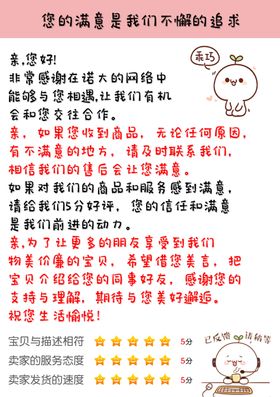 您的满意是我们不懈的追求
乖巧
亲,您好!
非常感谢在诺大的网络中
能够与您相遇,让我们有机
会和您交往合作。
亲，如果您收到商品，无论任何原因，
有不满意的地方，请及时联系我们，
相信我们的售后会让您满意。
如果对我们的商品和服务感到满意，
请给我们5分好评，您的信任和满意
是我们前进的动力。
亲,为了让更多的朋友享受到我们
物美价廉的宝贝，希望借您美言，把
宝贝介绍给您的同事好友，感谢您的
支持与理解，期待与您美好邂逅。
祝您生活愉悦!
宝贝与描述相符 5分
卖家的服务态度 5分
卖家发货的速度 5分
已反馈 请稍等